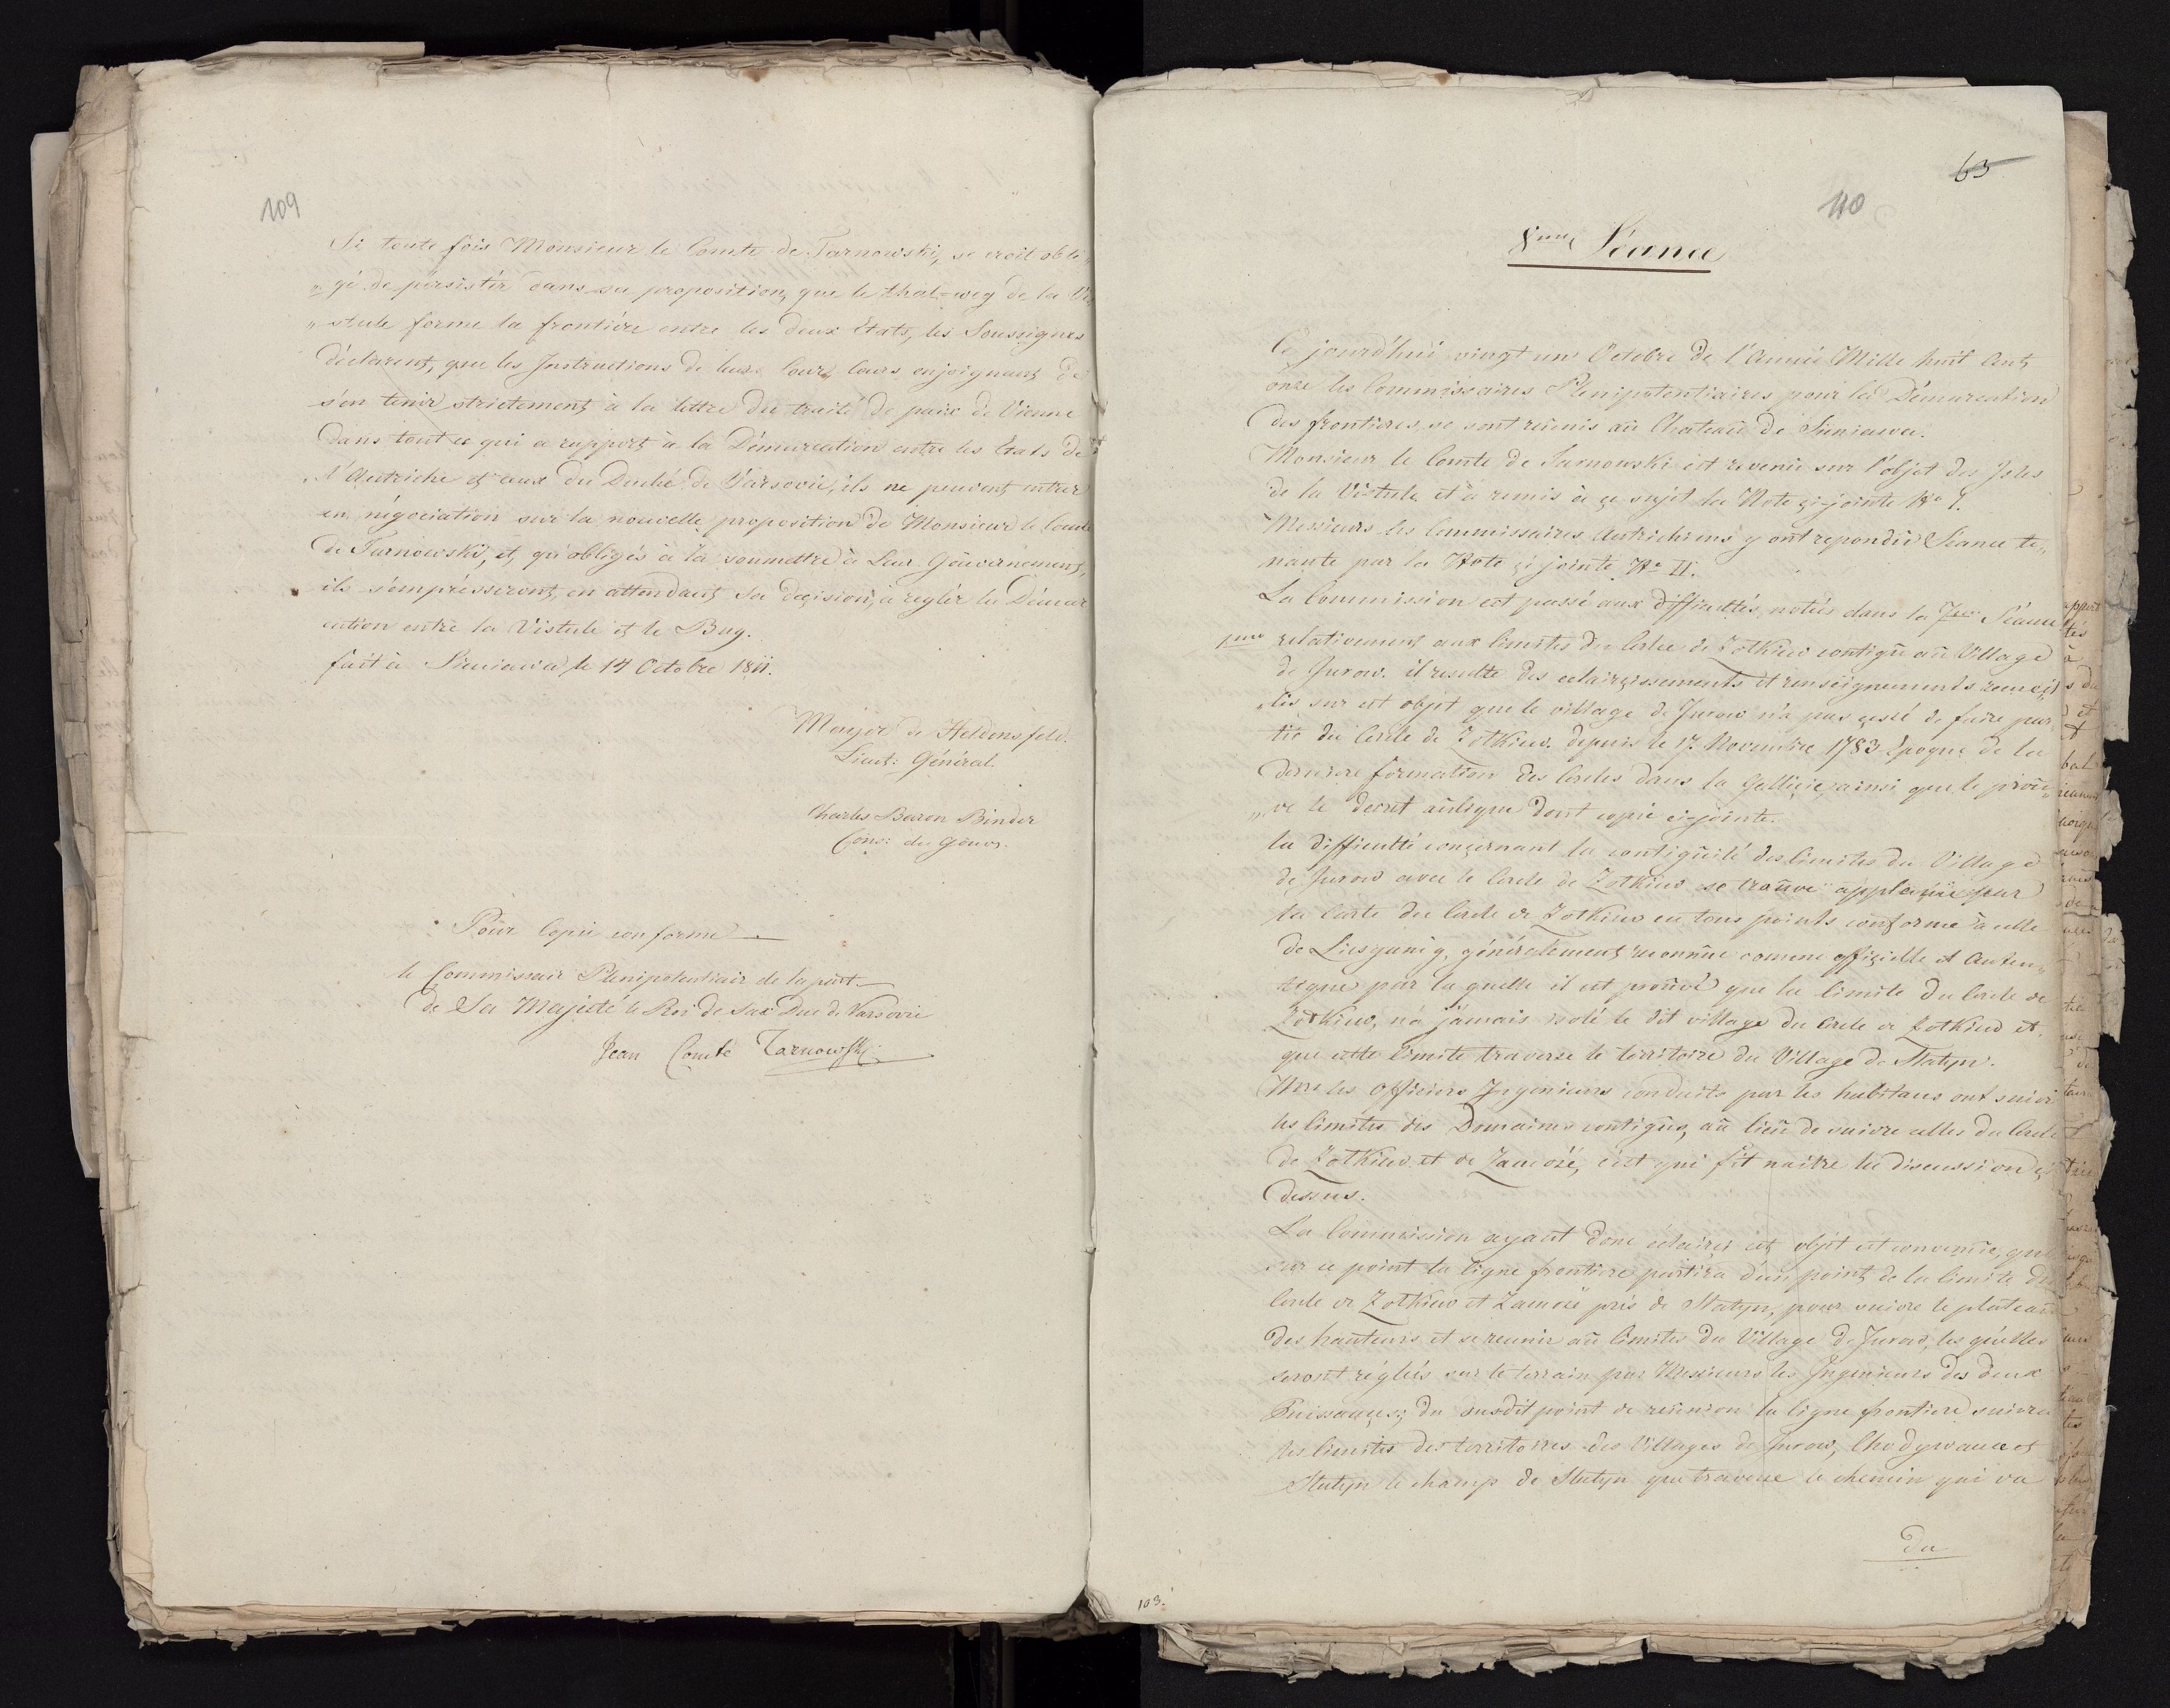 109
Si toute fois Monsieur le Comte de Tarnowski, se croit obli
„gé de persister dans sa proposition, que le thal=weg de la Vi
„stule forme la frontière entre les deux Etats, les Soussignés
déclarent, que les Instructions de leurs Cours, leurs enjoignant de
s'en tenir strictement à la lettre du traité de paix de Vienne
dans tout ce qui a rapport à la Démarcation entre les Etats de
l'Autriche et ceux du Duché de Varsovie, ils ne peuvent entrer
en négociation sur la nouvelle proposition de Monsieur le Comte
de Tarnowski, et, qu'obligés à la soumettre à Leur Gouvernement,
ils s'empresseront, en attendant sa décision, à regler la Démar
cation entre la Vistule et le Bug.
fait à Sieniawa le 14 Octobre 1811.
Mayer de Heldensfeld.
Lieut: Général.
Charles Baron Binder
Cons: du Gouv.
Pour Copie conforme
le Commissair Plenipotentiair de la part
de Sa Majesté le Roi de Sax Duc de Varsovie
Jean Comte Tarnowski
65
110
8me Séance
Ce jourd'hui vingt un Octobre de l'Année Mille huit Cent
onze les Commissaires Plenipotentiaires pour la Démarcation
des frontieres, se sont réunis au Chateau de Sieniawa.
Monsieur le Comte de Tarnowski est revenu sur l'objet des Isles
de la Vistule et a remis à ce sujet la Note ci-jointe No I.
Messieurs les Commissaires Autrichiens y ont repondu Seance te„
nante par la Note ci jointe No II.
La Commission est passé aux difficultés notées dans la 7me Séance
1mo relativement aux limites du Cercle de Zolkiew contigu au Village
de Jurow. il resulte des eclaircissements et renseignements recueil
„lis sur cet objet que le village de Jurow n'a pas cessé de faire par„
tie du Cercle de Zolkiew depuis le 17 Novembre 1783 Epoque de la
derniere formation des Cercles dans la Gallicie, ainsi que le prou„
„ve le decret aulique dont copie ci-jointe.
la difficulté concernant la contiguité des limites du Village
de Jurow avec le Cercle de Zolkiew se trouve applanie par
la Carte du Cercle de Zolkiew en tous points conforme à celle
de Liesganig, généralement reconnue comme officielle et Auten„
tique par la quelle il est prouvé que la limite du Cercle de
Zolkiew, n'a jamais isolé le dit village du Cercle de Zolkiew et
que cette limite traverse le territoire du Village de Statyn.
Mrs les Officiers Ingenieurs conduits par les habitans ont suivi
les limites des Domaines contigus, au lieu de suivre celles du Cercle
de Zolkiew et de Zamosc, c'est qui fit naitre la discussion ci
dessus.
La Commission ayant donc éclairci cet objet est convenue, que
sur ce point la ligne frontiere partira d'un point de la limite du
Cercle de Zolkiew et Zamosc près de Statyn, pour suivre le plateau
des hauteurs et se reunir aû limites du Village de Jurow, les quelles
seront réglées sur le terrain par Messieurs les Ingenieurs des deux
Puissances; du susdit point de réunion la ligne frontiere suivra
les limites des territoires des Villages de Jurow, Chodywance et
Statyn le champ de Statyn que traverse le chemin qui va
du
103.